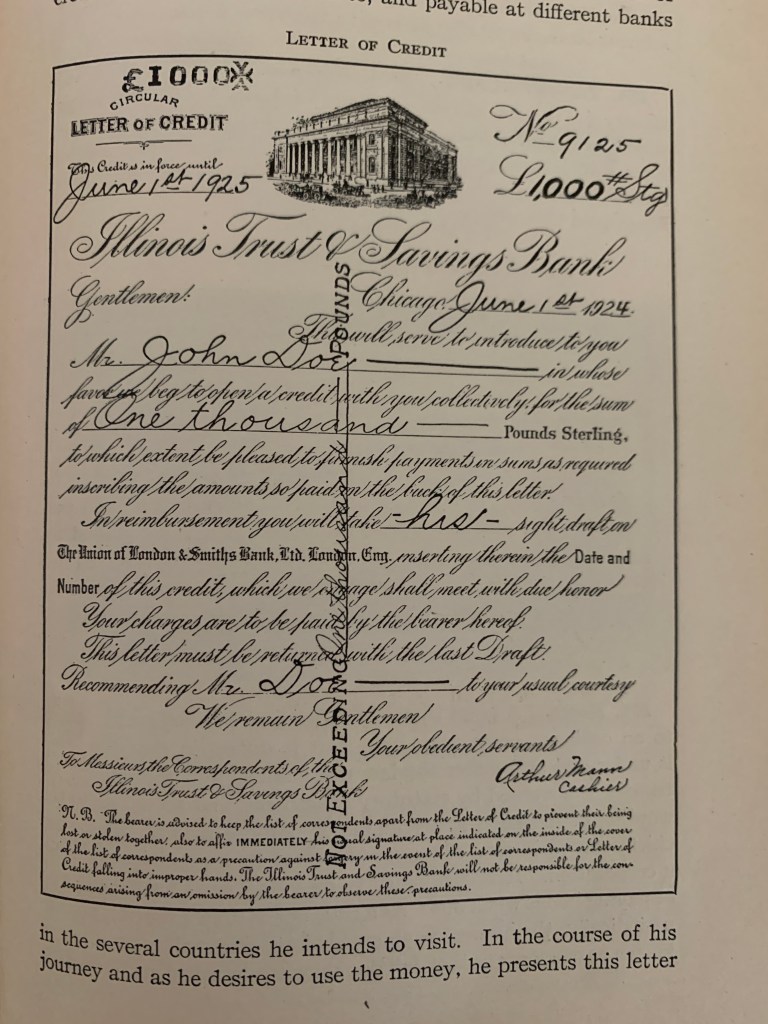 and payable at different banks
LETTER OF CREDIT
£1000
CIRCULAR
LETTER OF CREDIT
This Credit is in force until
June 1st 1925
No 9125
£1,000 Stg
Illinois Trust & Savings Bank
Gentlemen:
Chicago, June 1st 1924.
This will serve to introduce to you
Mr. John Doe in whose
favor we beg to open a credit with you collectively for the sum
of One thousand Pounds Sterling,
to which extent be pleased to furnish payments in sums as required
inscribing the amounts so paid on the back of this letter.
In reimbursement you will take - his - sight draft on
The Union of London & Smiths Bank, Ltd. London, Eng. inserting therein the Date and
Number of this credit, which we engage shall meet with due honor
Your charges are to be paid by the bearer hereof.
This letter must be returned with the last Draft.
Recommending Mr. Doe to your usual courtesy
We remain Gentlemen
Your obedient servants
Arthur Mann
Cashier
To Messieurs the Correspondents of the
Illinois Trust & Savings Bank
NOT EXCEEDING One thousand POUNDS
N. B. The bearer is advised to keep the list of correspondents apart from the Letter of Credit to prevent their being
lost or stolen together, also to affix IMMEDIATELY his usual signature at place indicated on the inside of the cover
of the list of correspondents as a precaution against forgery in the event of the list of correspondents or Letter of
Credit falling into improper hands. The Illinois Trust and Savings Bank will not be responsible for the con-
sequences arising from an omission by the bearer to observe these precautions.
in the several countries he intends to visit. In the course of his
journey and as he desires to use the money, he presents this letter